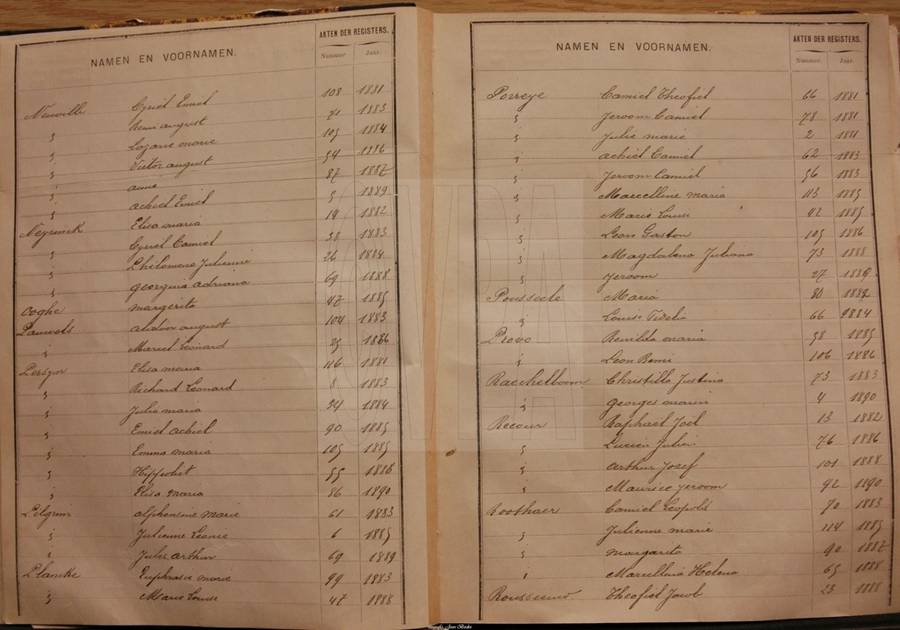 NAMEN EN VOORNAMEN. AKTEN DER REGISTERS.
Nummer Jaar.
Neuville Cyriel Emiel 108 1881
" Remi august 71 1883
" Lazare marie 105 1884
" Victor august 54 1886
" anna 87 1887
" achiel Emiel 5 1889
Neyrinck Elisa maria 19 1882
" Cyriel Camiel 38 1883
" Philomene Julienne 26 1884
" georgina adriana 69 1888
Coghe margerita 47 1885
Pauwels august 104 1883
" Marcel Leonard 25 1886
Elisa maria 116 1881
" Richard Leonard 8 1883
" Julie maria 24 1884
" Emiel achiel 90 1885
" Emma maria 105 1885
" Hippoliet 55 1886
" Elisa maria 86 1890
Pelgrim alphonsine marie 61 1883
" Julienne Leonie 6 1885
" Jules arthur 69 1889
Plancke Euphrasie marie 99 1883
" Marie Louise 47 1888
NAMEN EN VOORNAMEN. AKTEN DER REGISTERS.
Nummer Jaar.
Porreye Camiel Theofiel 66 1881
" Jeroom Camiel 78 1881
" Julie marie 2 1881
" achiel Camiel 62 1883
" Jeroom Camiel 56 1883
" Marcelline maria 113 1885
" Marie Louise 92 1885
" Leon Gaston 105 1886
" Magdalena Juliana 73 1888
" Jeroom 27 1889
Pousseele Maria 80 1882
" Louise 66 1884
Provo Romilda maria 58 1885
" Leon Remi 106 1886
Raechelboom Christilla Justina 73 1883
" georges 4 1890
Recour Raphaël Joël 13 1882
" Lucien Julien 76 1886
" Arthur Josef 101 1888
" Maurice Jeroom 92 1890
Roothaer Camiel Leopold 70 1883
" Julienne marie 114 1885
" margarita 90 1887
" Marcellina Helena 65 1888
Theofiel Jacob 23 1888